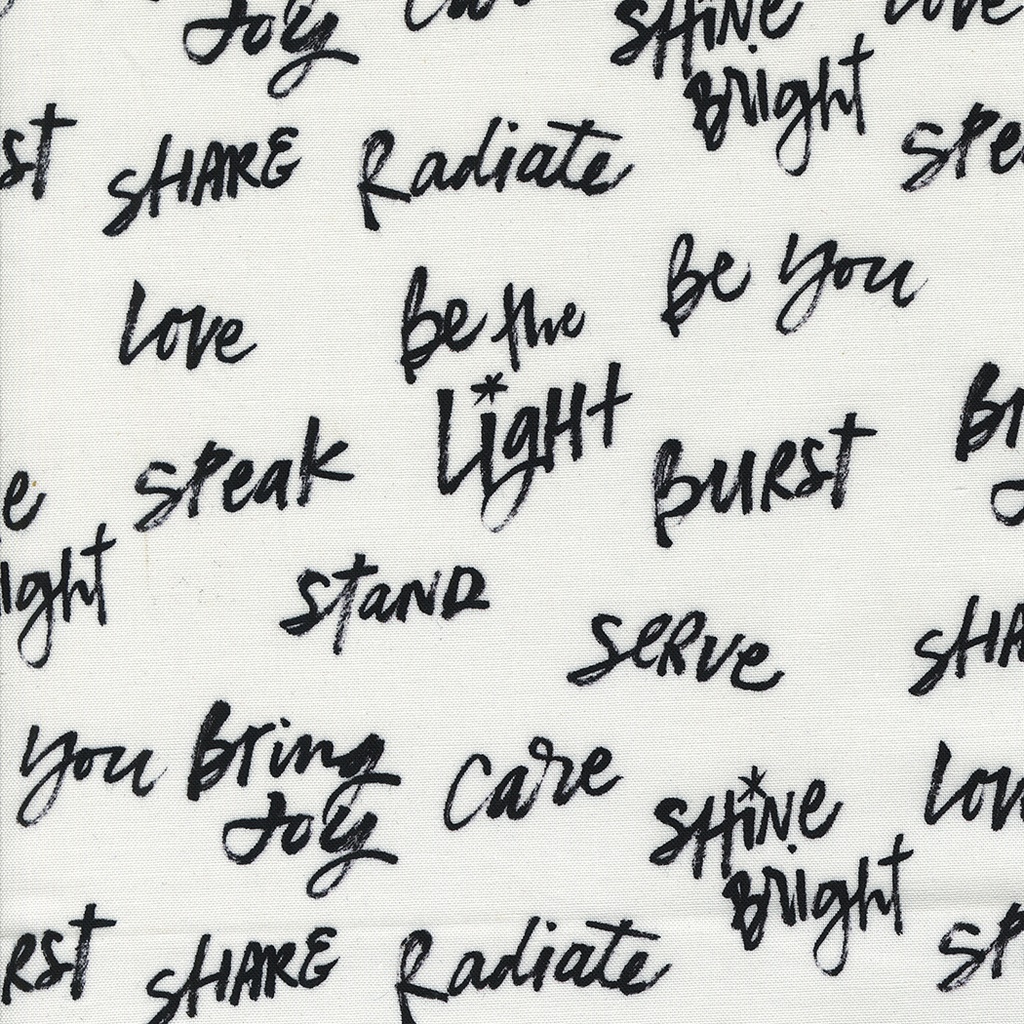 Joy Care SHiNe Love
Bright
st SHARE Radiate Spe
Love Be the Be You
Light
Speak BURST Br
e
ight Stand
Serve SHA
You Bring Care SHiNe Lov
Joy Bright
RST SHARE Radiate SP